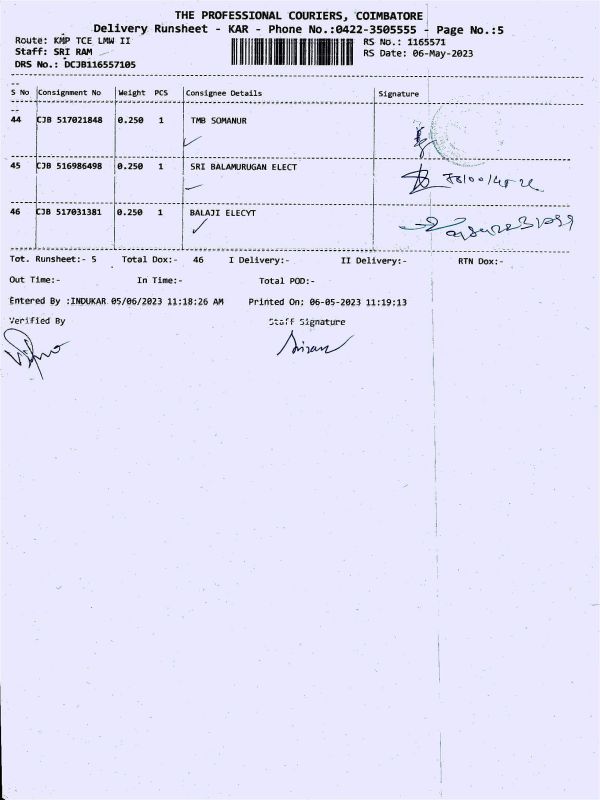 THE PROFESSIONAL COURIERS, COIMBATORE
Delivery Runsheet - KAR - Phone No.:0422-3505555 - Page No.:5
Route: KMP TCE LMW II
RS No.: 1165571
Staff: SRI RAM
RS Date: 06-May-2023
DRS No.: DCJB116557105
S No Consignment No Weight PCS Consignee Details Signature
44 CJB 517021848 0.250 1 TMB SOMANUR
45 CJB 516986498 0.250 1 SRI BALAMURUGAN ELECT
46 CJB 517031381 0.250 1 BALAJI ELECYT
Tot. Runsheet:- 5 Total Dox:- 46 I Delivery:- II Delivery:- RTN Dox:-
Out Time:- In Time:- Total POD:-
Entered By :INDUKAR 05/06/2023 11:18:26 AM Printed On: 06-05-2023 11:19:13
Verified By Staff Signature
Sriram